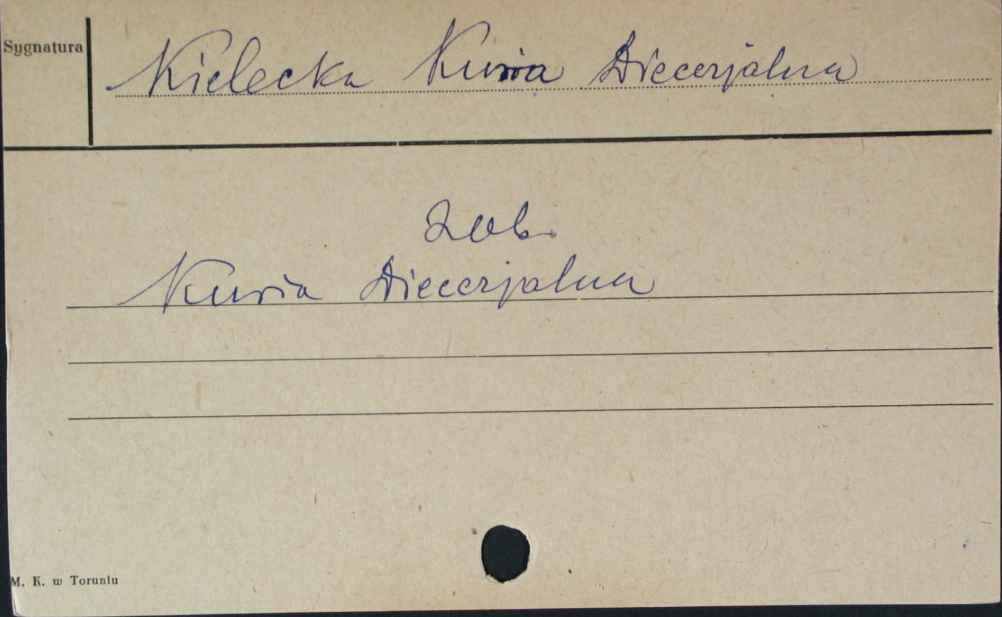 Sygnatura
Kielecka Kuria Diecezjalna
zob.
Kuria Diecezjalna
M. K. w Toruniu